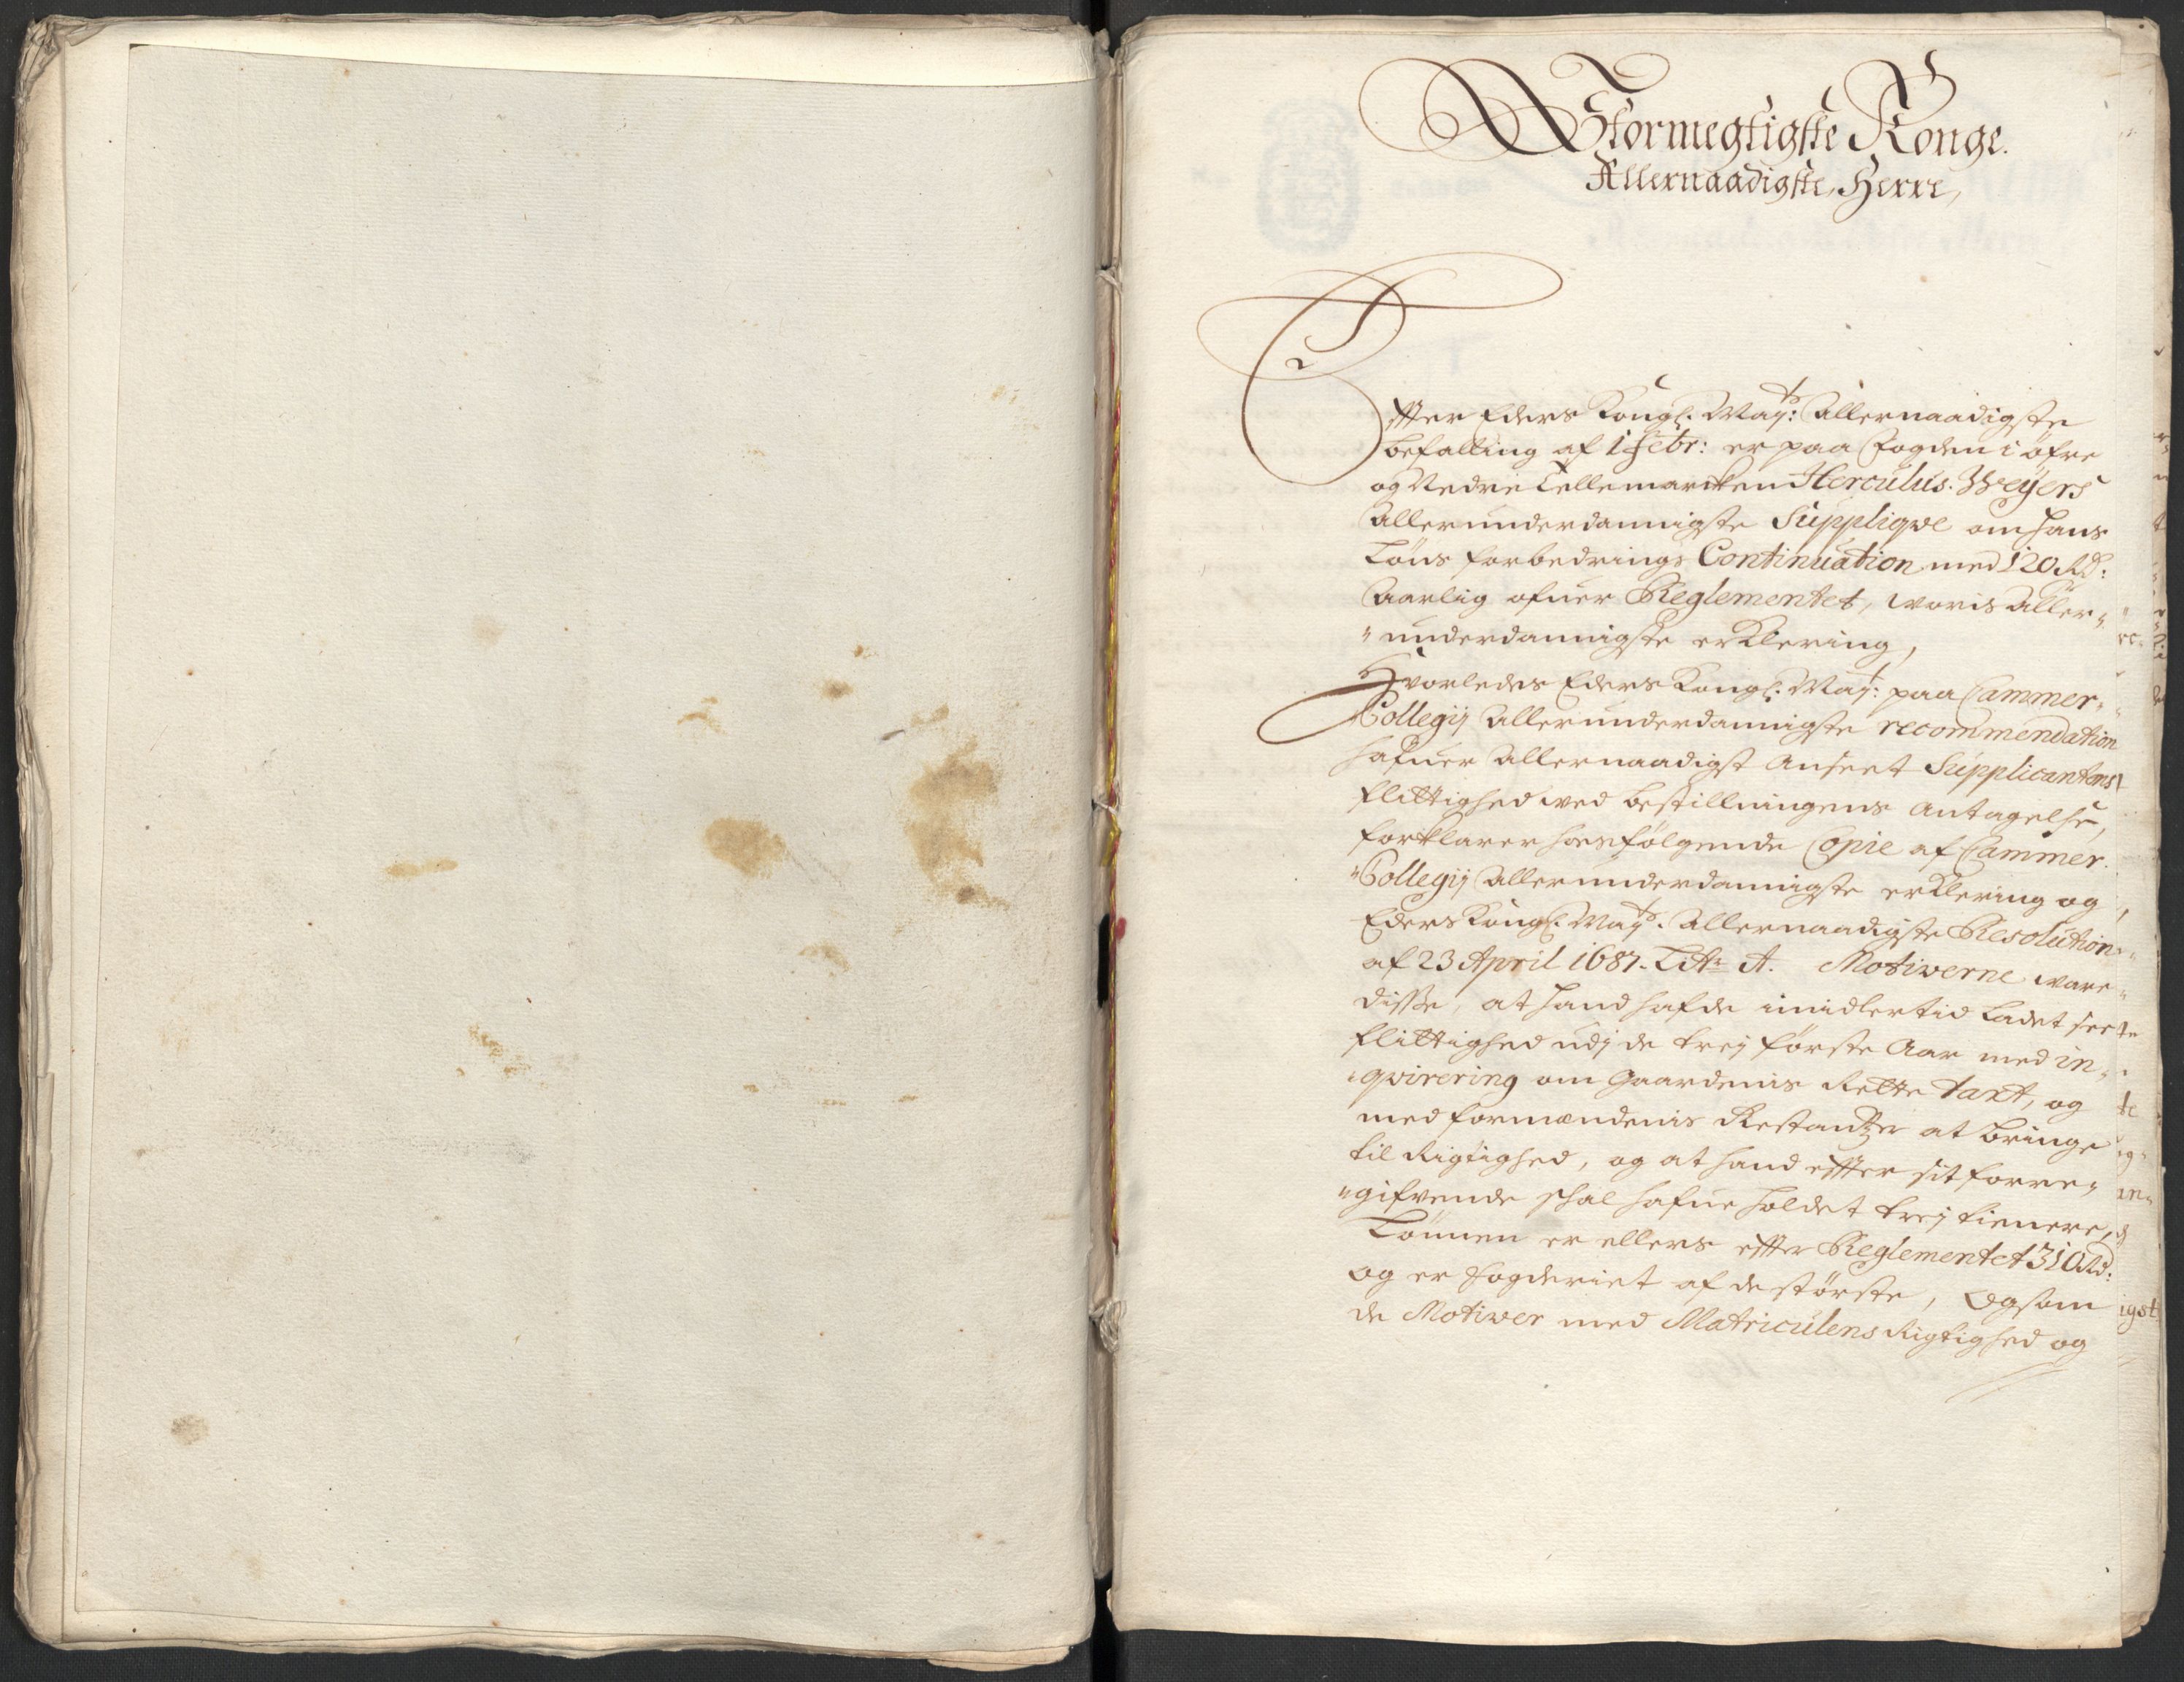 Stormegtigste Konge.
Allernaadigste, Herre,
Effter Eders Kongl. May:ts Allernaadigste
befalling af 1 Febr: er paa Fogden i öfre
og Nedre Tellemarcken Herculus. Weÿers
Allerunderdannigste Suppliqve om hans
Löns forbedrings Continuation med 120 Rd:
Aarlig ofuer Reglementet, voris Aller-
"underdannigste erklering,
Hvorledes Eders Kongl. May:t paa Cammer-
Collegij Allerunderdannigste recommendation
hafuer Allernaadigst Anseet Supplicantens
flittighed ved bestillningens Antagelse,
forklarer hosfölgende Copie af Cammer.
"Collegij Allerunderdannigste erklering og
Eders Kongl. May:ts Allernaadigste Resolution
af 23 April 1687. Litr: A. Motiverne vare
disse, at hand hafde imidlertid ladet see
flittighed udj de trej förste Aar med in-
"qvirering om Gaardenis Rette taxt, og
med formændenis Restantzer at bringe
til Rigtighed, og at hand effter sit forre-
"gifvende schal hafue holdet trej tienere,
Lönnen er ellers effter Reglementet 310 Rd:
og er fogderiet af de störste, Ogsom
de Motiver med Matriculens Rigtighed og